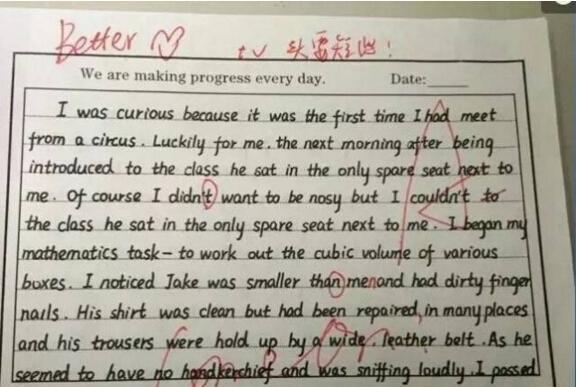 Better
tv 头要短些!
We are making progress every day. Date:
I was curious because it was the first time I had meet
from a circus. Luckily for me. the next morning after being
introduced to the class he sat in the only spare seat next to
me. Of course I didn't want to be nosy but I couldn't to
the class he sat in the only spare seat next to me. I began my
mathematics task- to work out the cubic volume of various
boxes. I noticed Jake was smaller than men and had dirty finger
nails. His shirt was clean but had been repaired, in many places
and his trousers were hold up by a wide. leather belt. As he
seemed to have no handkerchief and was sniffing loudly. I passed